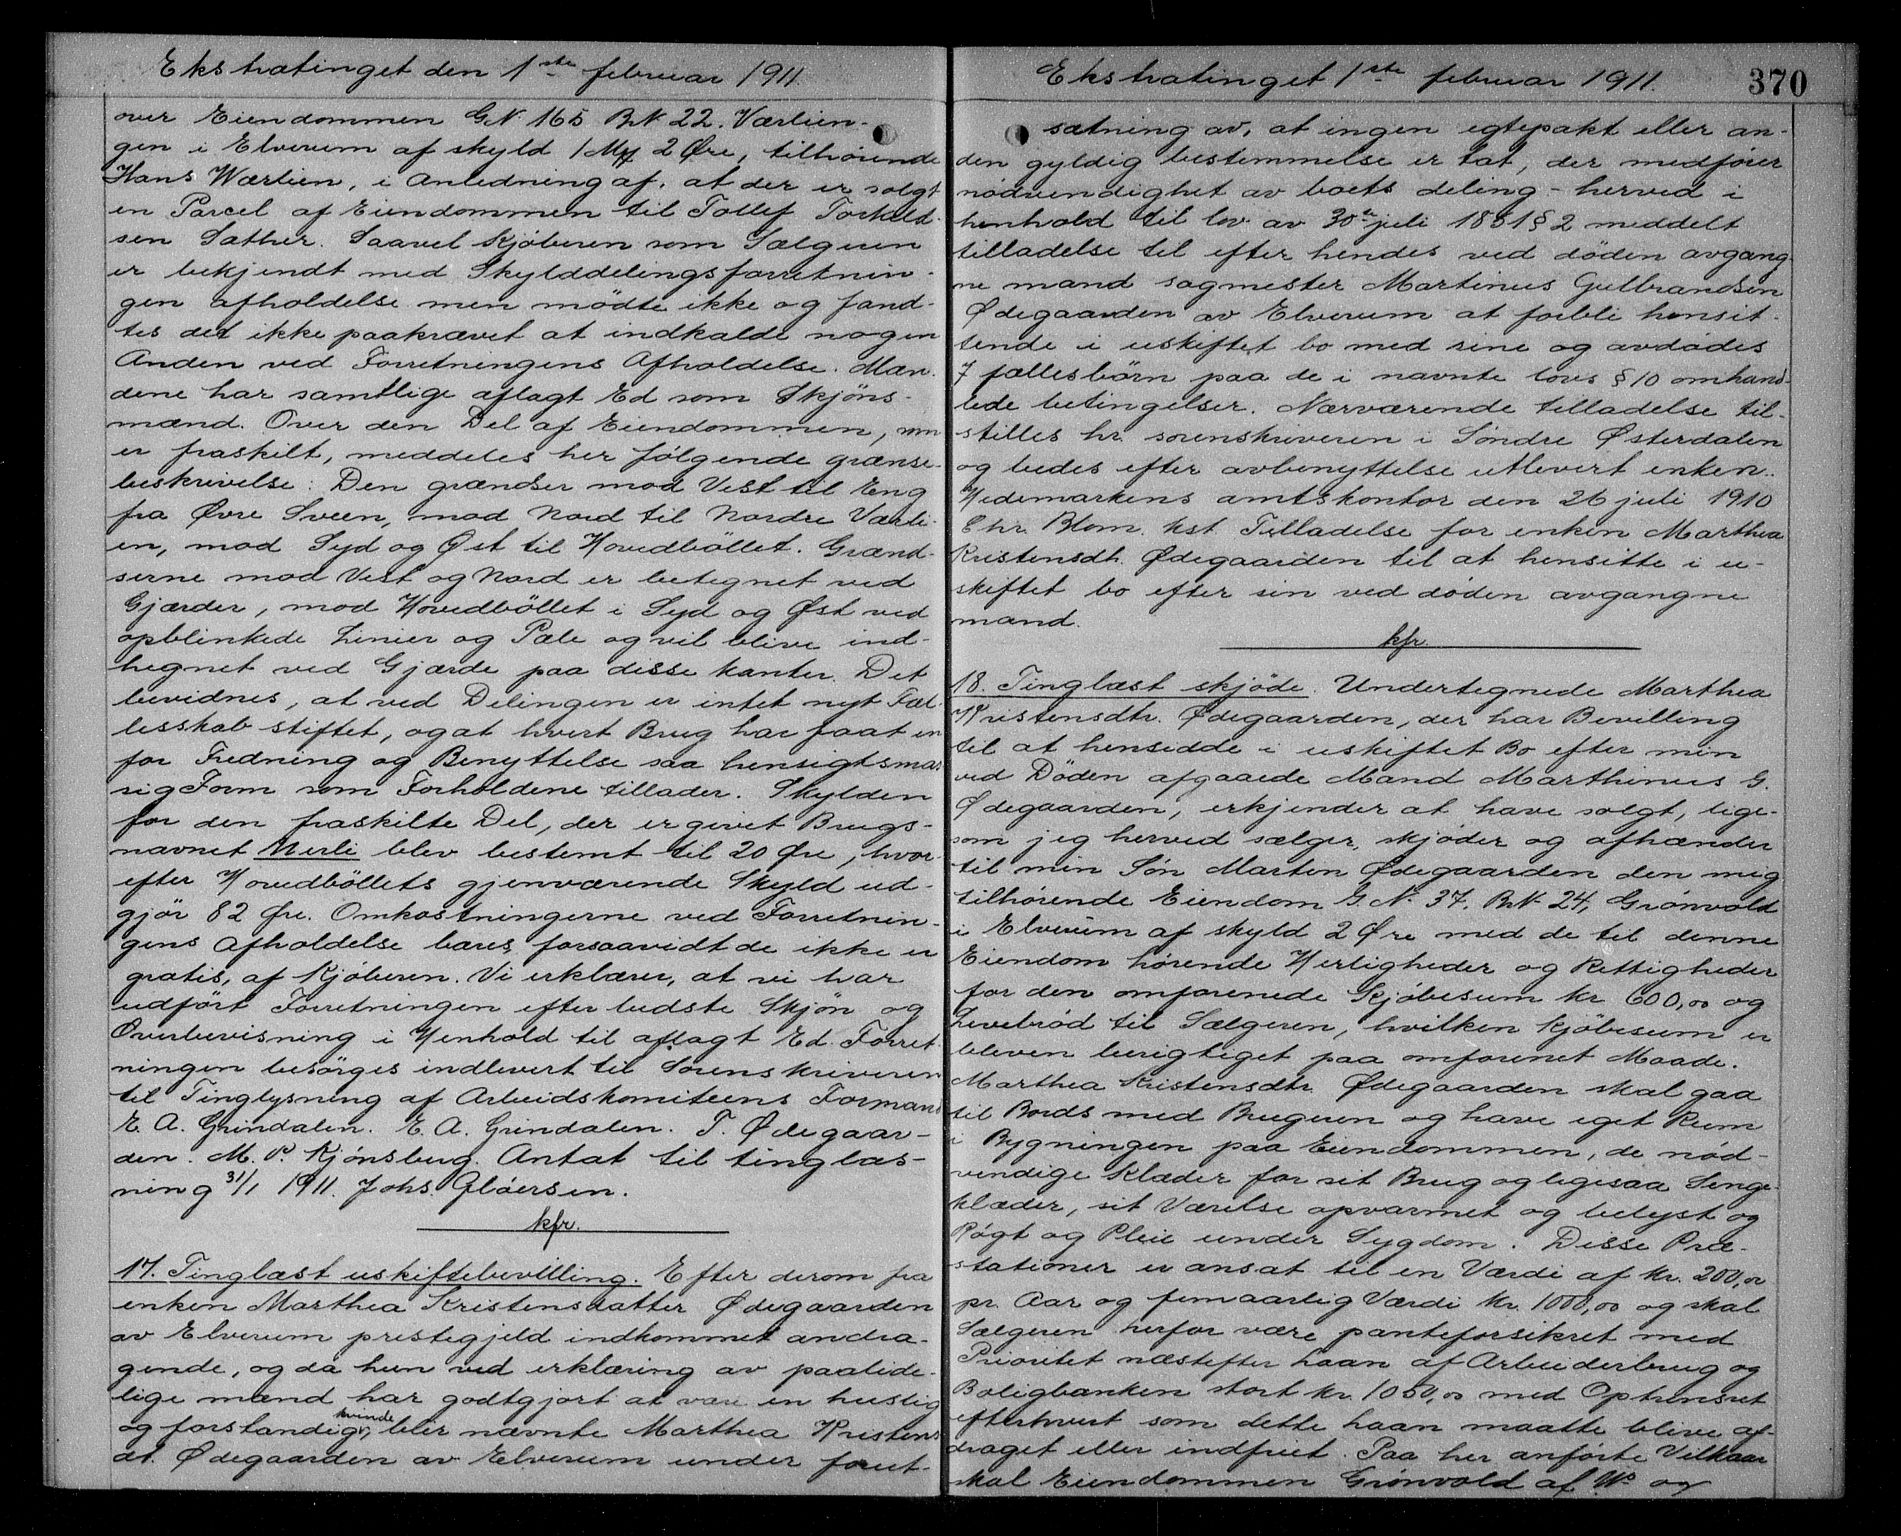 Ekstratinget den 1ste februar 1911
over Eiendommen GN 165 BN 22. Værlien-
gen i Elverum af skyld 1 Mk 2 Øre, tilhørende
Hans Værlien, i Anledning af, at der er solgt
en Parcel af Eiendommen til Tollef Torkild-
sen Sæther. Saavel Kjøberen som Sælgeren
er bekjendt med Skylddelingsforretnin-
gen afholdelse men mödte ikke og fand-
tes det ikke paakrævet at indkalde nogen
Anden ved Forretningens Afholdelse. Mæn-
dene har samtlige aflagt Ed som Skjöns-
mænd. Over den Del af Eiendommen, som
er fraskilt, meddeles her følgende grænse-
beskrivelse: Den grændser mod Vest til Eng
fra Øvre Sveen, mod Nord til Nordre Værli-
en, mod Syd og Øst til Hovedböllet. Grænd-
serne mod Vest og Nord er betegnet ved
Gjærder, mod Hovedböllet i Syd og Øst ved
opblinkede Linier og Pæle og vil blive ind-
hegnet ved Gjærde paa disse kanter. Det
bevidnes, at ved Delingen er intet nyt Fæl-
lesskab stiftet, og at hvert Brug har faat en
for Fredning og Benyttelse saa hensigtsmæs-
sig Form som Forholdene tillader. Skylden
for den fraskilte Del, der er givet Brugs-
navnet Nerli blev bestemt til 20 Øre, hvor-
efter Hovedböllets gjenværende Skyld ud-
gjör 82 Øre. Omkostningerne ved Forretnin-
gens Afholdelse bæres, forsaavidt de ikke er
gratis, af Kjöberen. Vi erklærer, at vi har
udfört Forretningen efter bedste Skjön og
Overbevisning i Henhold til aflagt Ed. Forret-
ningen besörges indlevert til Sorenskriveren
til Tinglysning af Arbeidskomiteens Formand
E. A. Grindalen. E. A. Grindalen. T. Ødegaar-
den. M. P. Kjönsberg. Antat til tinglæs-
ning 31/1 1911. Johs. Gløersen.
kfr.
17. Tinglæst uskiftebevilling. Efter derom fra
enken Marthea Kristensdatter Ødegaarden
av Elverum prestegjeld indkommet andra-
gende, og da hun ved erklæring av paalide-
lige mænd har godtgjort at være en huslig
og forstandig kvinde, blir nævnte Marthea Kristens-
dt. Ødegaarden av Elverum under forut-
Ekstratinget 1ste februar 1911.
370
sætning av, at ingen egtepakt eller an-
den gyldig bestemmelse er tat, der medfører
nødvendighet av boets deling - herved i
henhold til lov av 30te juli 1851 § 2 meddelt
tilladelse til efter hendes ved døden avgang-
ne mand sagmester Martinus Gulbrandsen
Ødegaarden av Elverum at forbli hensit-
tende i uskiftet bo med sine og avdødes
7 fællesbörn paa de i nævnte lovs § 10 omhand-
lede betingelser. Nærværende tilladelse til-
stilles hr. sorenskriveren i Söndre Østerdalen
og bedes efter avbenyttelse utlevert enken.
Hedemarkens amtskontor den 26 juli 1910
Chr. Blom. kst. Tilladelse for enken Marthea
Kristensdt. Ødegaarden til at hensitte i u-
skiftet bo efter sin ved döden avgangne
mand.
kfr.
18. Tinglæst skjöde. Undertegnede Marthea
Kristensdtr. Ødegaarden, der har Bevilling
til at hensidde i uskiftet Bo efter min
ved Döden afgaaede Mand Marthinus G.
Ødegaarden, erkjender at have solgt, lige-
som jeg herved sælger, skjøder og afhænder
til min Sön Marten Ødegaarden den mig
tilhörende Eiendom G.N. 37. BN. 24, Grönvold
i Elverum af skyld 2 Øre med de til denne
Eiendom hörende Herligheder og Rettigheder
for den omforenede Kjöbesum kr. 600,00 og
Levebröd til Sælgeren, hvilken Kjöbesum er
bleven berigtiget paa omforenet Maade.
Marthea Kristensdtr. Ødegaarden skal gaa
til Bords med Brugeren og have eget Rum
i Bygningen paa Eiendommen, de nöd-
vendige Klæder for sit Brug og ligesaa Senge-
klæder, sit Værelse opvarmet og belyst og
Rögt og Pleie under Sygdom. Disse Præ-
stationer er ansat til en Værdi af kr. 200,00
pr. Aar og femaarlig Værdi kr. 1000,00 og skal
Sælgeren herfor være panteforsikret med
Prioritet næstefter Laan af Arbeiderbrug og
Boligbanken stort kr. 1050,00 med Optrinsret
efterhvert som dette Laan maatte blive af-
draget eller indfriet. Paa her anförte Vilkaar
skal Eiendommen Grönvold af No og